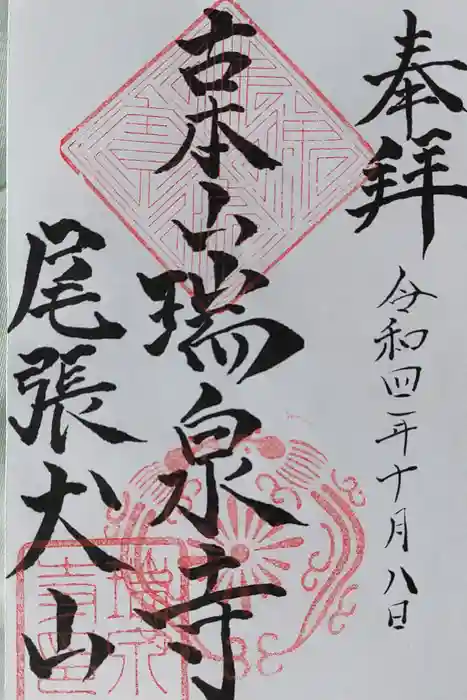 奉拝
令和四年十月八日
古本山瑞泉寺
尾張犬山